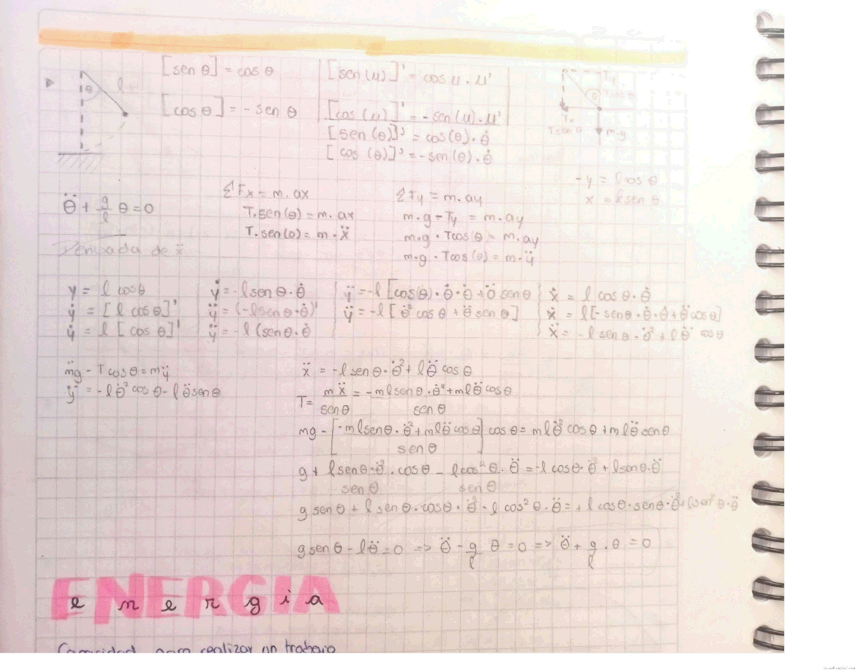 [sen θ] = cos θ
[cos θ] = - sen θ
[sen (u)]' = cos u · u'
[cos (u)]' = - sen (u) · u'
[sen (θ)]' = cos (θ) · θ̇
[cos (θ)]' = - sen (θ) · θ̇
θ l
Ty
θ
Tx
m·g
-y = l cos θ
x = l sen θ
θ̈ + g/l θ = 0
ΣFx = m. ax
T. sen (θ) = m. ax
T. sen (θ) = m · ẍ
ΣFy = m. ay
m.g - Ty = m. ay
m.g · Tcos θ = m. ay
m.g · Tcos (θ) = m. ÿ
Derivada de ẍ
y = l cos θ
ẏ = [l cos θ]'
ẏ = l [cos θ]'
ẏ = - l sen θ · θ̇
ÿ = (- l sen θ · θ̇)'
ÿ = - l (sen θ · θ̇
ÿ = - l [cos(θ) · θ̇ · θ̇ + θ̈ sen θ
ÿ = - l [θ̇² cos θ + θ̈ sen θ]
ẋ = l cos θ · θ̇
ẍ = l [- sen θ · θ̇ · θ̇ + θ̈ cos θ]
ẍ = - l sen θ · θ̇² + l θ̈ cos θ
mg - T cos θ = mÿ
ÿ = - l θ̇² cos θ - l θ̈ sen θ
ẍ = - l sen θ · θ̇² + l θ̈ cos θ
T = mẍ/sen θ = - m l sen θ · θ̇² + m l θ̈ cos θ / sen θ
mg - [- m l sen θ · θ̇² + m l θ̈ cos θ / sen θ] cos θ = m l θ̇² cos θ + m l θ̈ sen θ
g + l sen θ · θ̇² · cos θ / sen θ - l cos² θ · θ̈ / sen θ = - l cos θ · θ̇² + l sen θ · θ̈
g sen θ + l sen θ · cos θ · θ̇² - l cos² θ · θ̈ = + l cos θ · sen θ · θ̇² + l sen² θ · θ̈
g sen θ - l θ̈ = 0 => θ̈ - g/l θ = 0 => θ̈ + g/l · θ = 0
ENERGIA
energia
Capacidad para realizar un trabajo